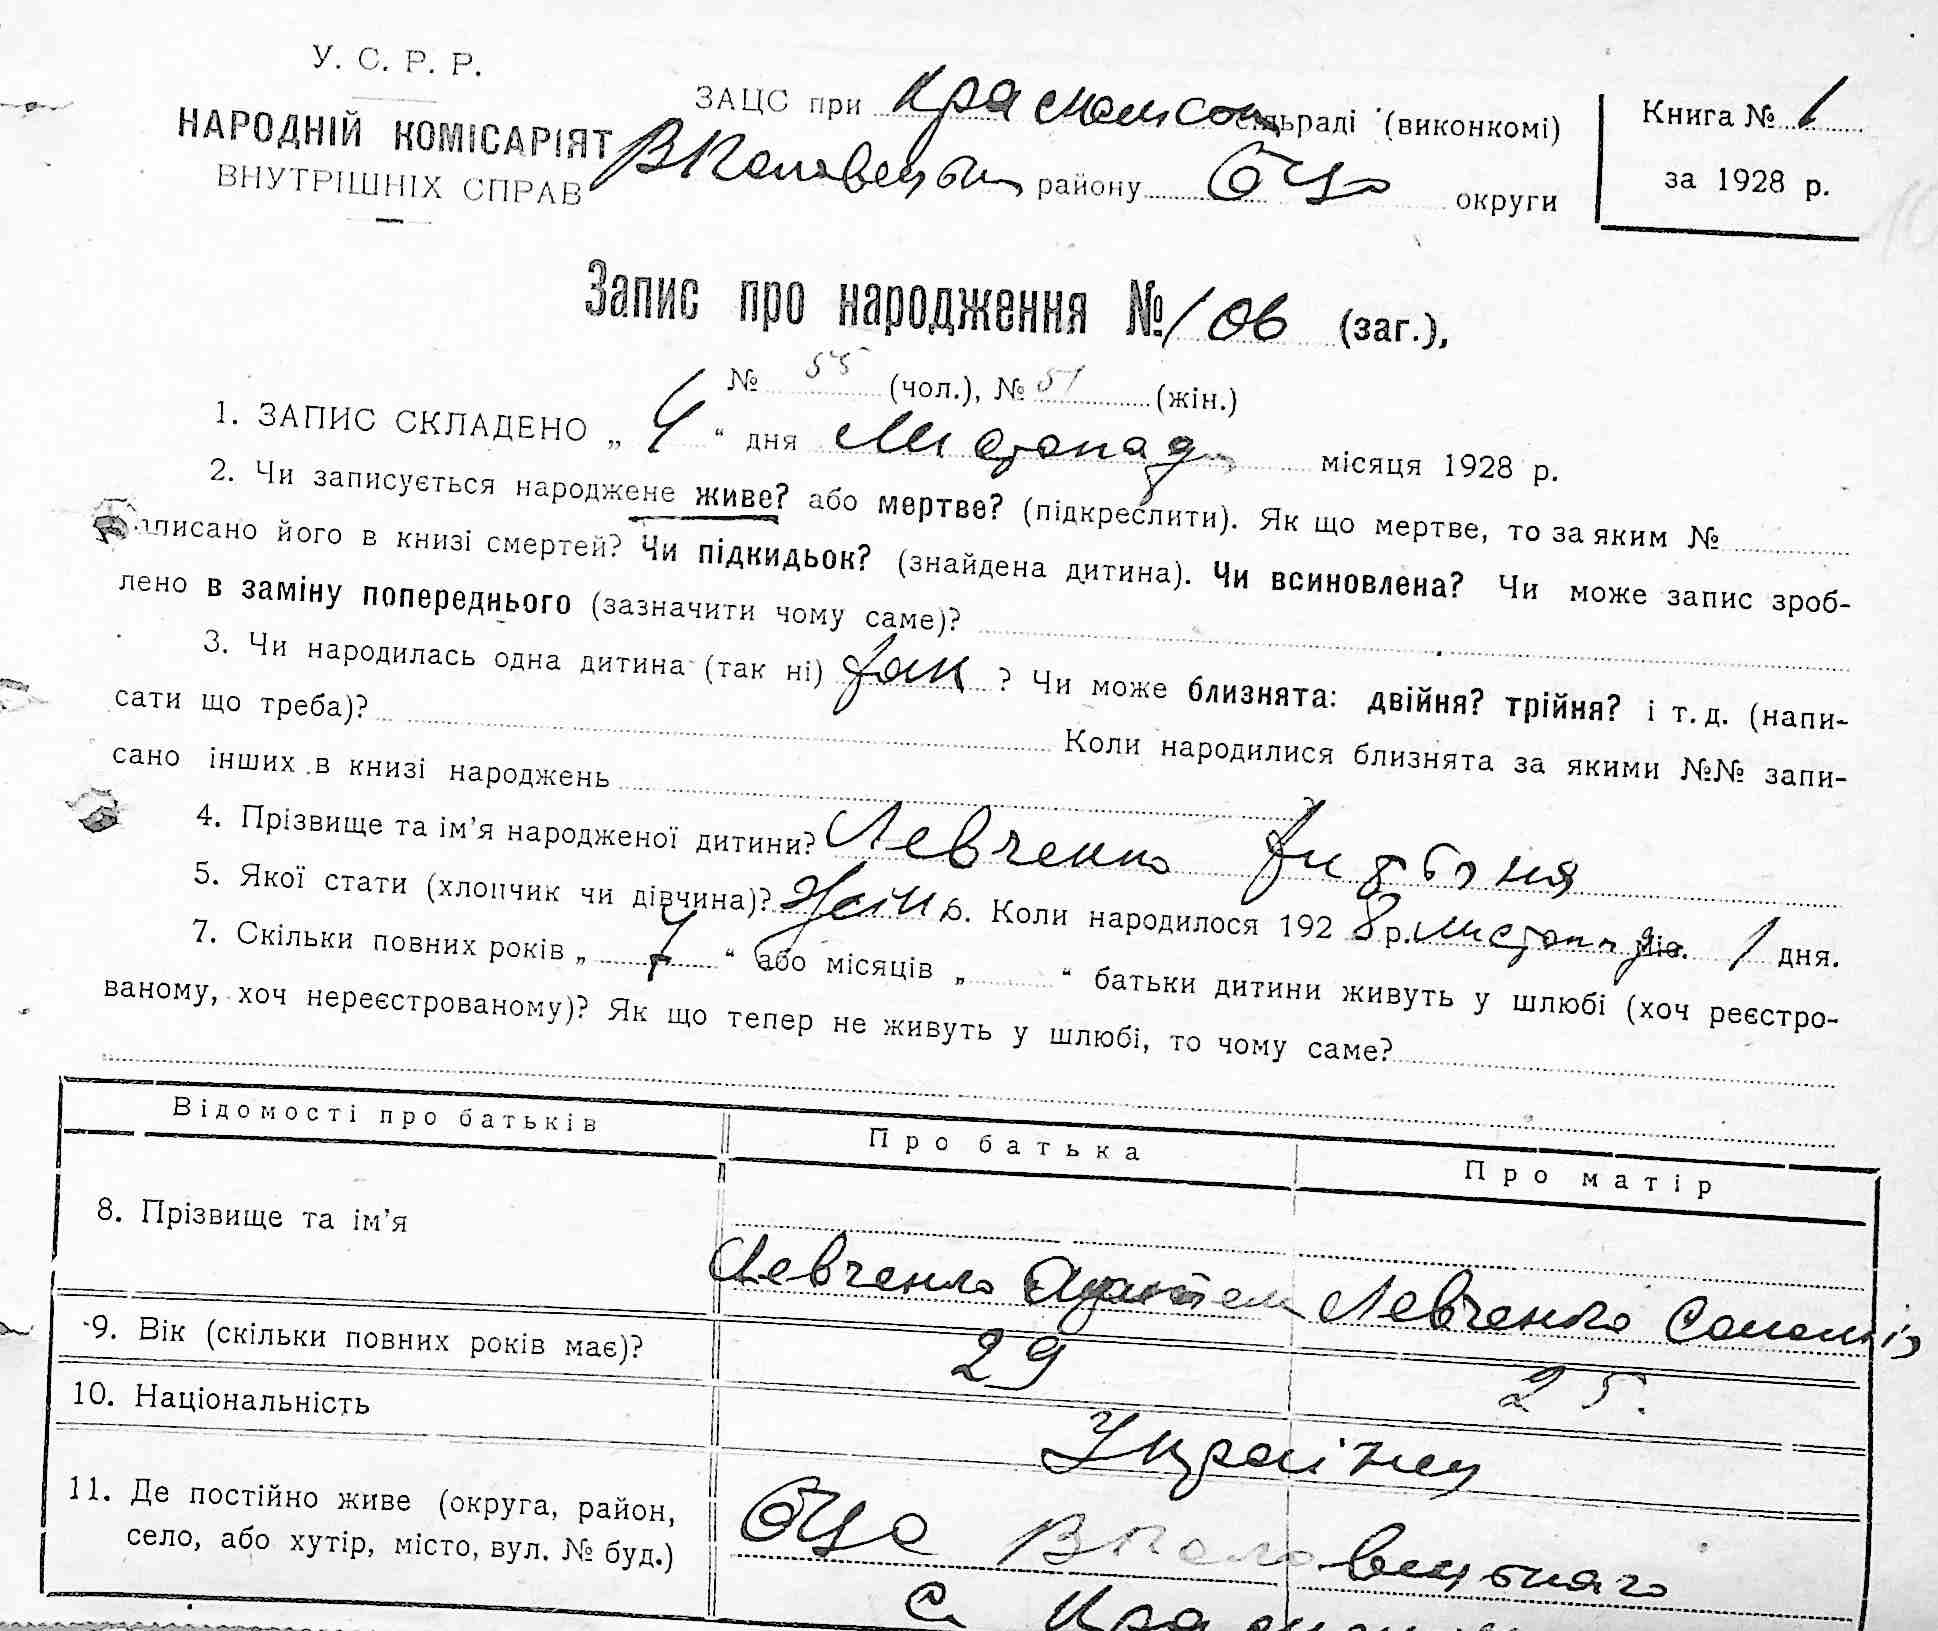 У. С. Р. Р.
НАРОДНІЙ КОМІСАРІЯТ
ВНУТРІШНІХ СПРАВ
ЗАЦС при сільраді (виконкомі)
району БЦ округи
Книга № 1
за 1928 р.
Запис про народження № 106 (заг.),
№ 55 (чол.), № 51 (жін.)
1. ЗАПИС СКЛАДЕНО „ 4 “ дня Листопада місяця 1928 р.
2. Чи записується народжене живе? або мертве? (підкреслити). Як що мертве, то за яким №
записано його в книзі смертей? Чи підкидьок? (знайдена дитина). Чи всиновлена? Чи може запис зроб-
лено в заміну попереднього (зазначити чому саме)?
3. Чи народилась одна дитина (так ні) так ? Чи може близнята: двійня? трійня? і т. д. (напи-
сати що треба)? Коли народилися близнята за якими №№ запи-
сано інших в книзі народжень
4. Прізвище та ім’я народженої дитини? Левченко
5. Якої стати (хлопчик чи дівчина)? Жін. 6. Коли народилося 1928 р. листопада міс. 1 дня.
7. Скільки повних років „ 7 “ або місяців „ “ батьки дитини живуть у шлюбі (хоч реєстро-
ваному, хоч нереєстрованому)? Як що тепер не живуть у шлюбі, то чому саме?
Відомості про батьків Про батька Про матір
8. Прізвище та ім’я Левченко Левченко Соломія
9. Вік (скільки повних років має)? 29 25.
10. Національність Українці
11. Де постійно живе (округа, район,
село, або хутір, місто, вул. № буд.)
БЦ
с.